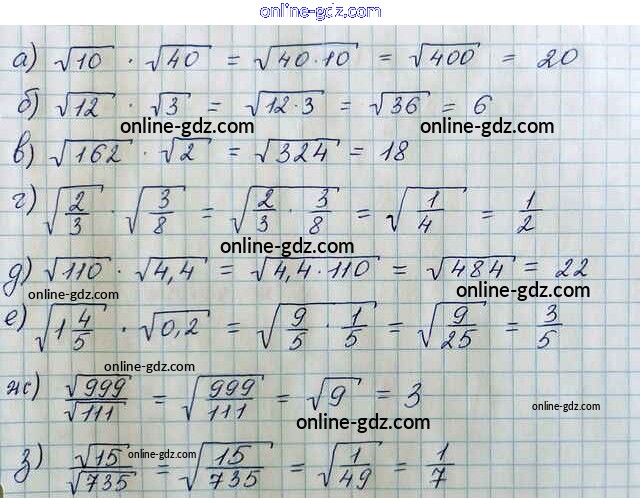 online-gdz.com
а) √10 · √40 = √40·10 = √400 = 20
б) √12 · √3 = √12·3 = √36 = 6
online-gdz.com online-gdz.com
в) √162 · √2 = √324 = 18
г) √2/3 · √3/8 = √2/3 · 3/8 = √1/4 = 1/2
online-gdz.com
д) √110 · √4,4 = √4,4·110 = √484 = 22
online-gdz.com online-gdz.com
е) √1 4/5 · √0,2 = √9/5 · 1/5 = √9/25 = 3/5
online-gdz.com
ж) √999/√111 = √999/111 = √9 = 3
online-gdz.com
online-gdz.com
з) √15/√735 = √15/735 = √1/49 = 1/7
online-gdz.com
online-gdz.com